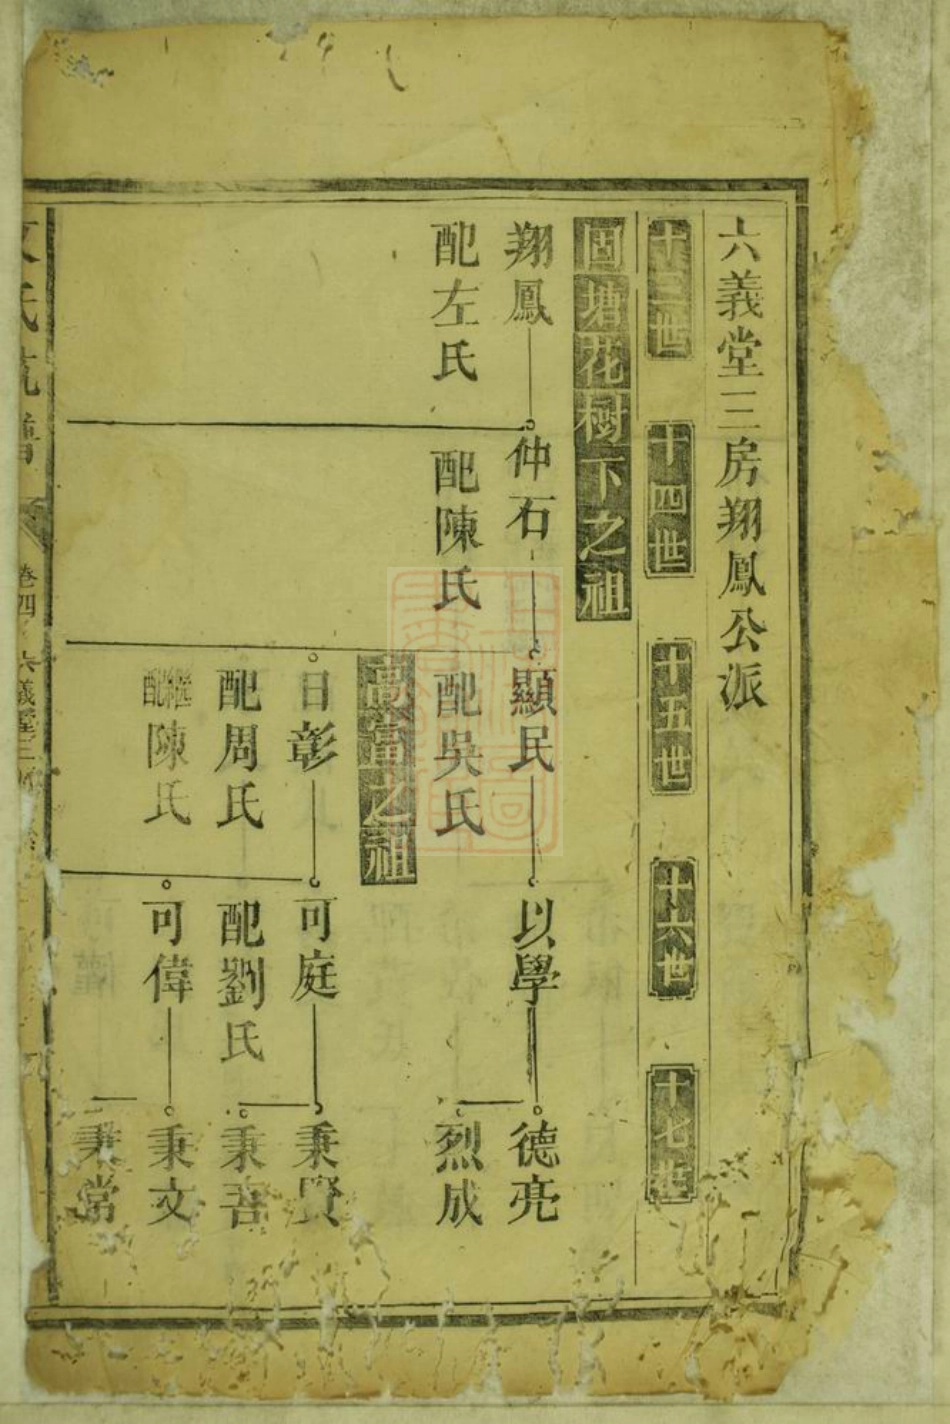 六義堂三房翔鳳公派
十三世 十四世 十五世 十六世 十七世
固塘花樹下之祖
翔鳳 仲石 顯民 以學 德亮
配左氏 配陳氏 配吳氏 烈成
之祖
日彰 可庭 秉賢
配周氏 配劉氏 秉善
繼配陳氏 可偉 秉文
秉常
氏 卷四 六義堂三